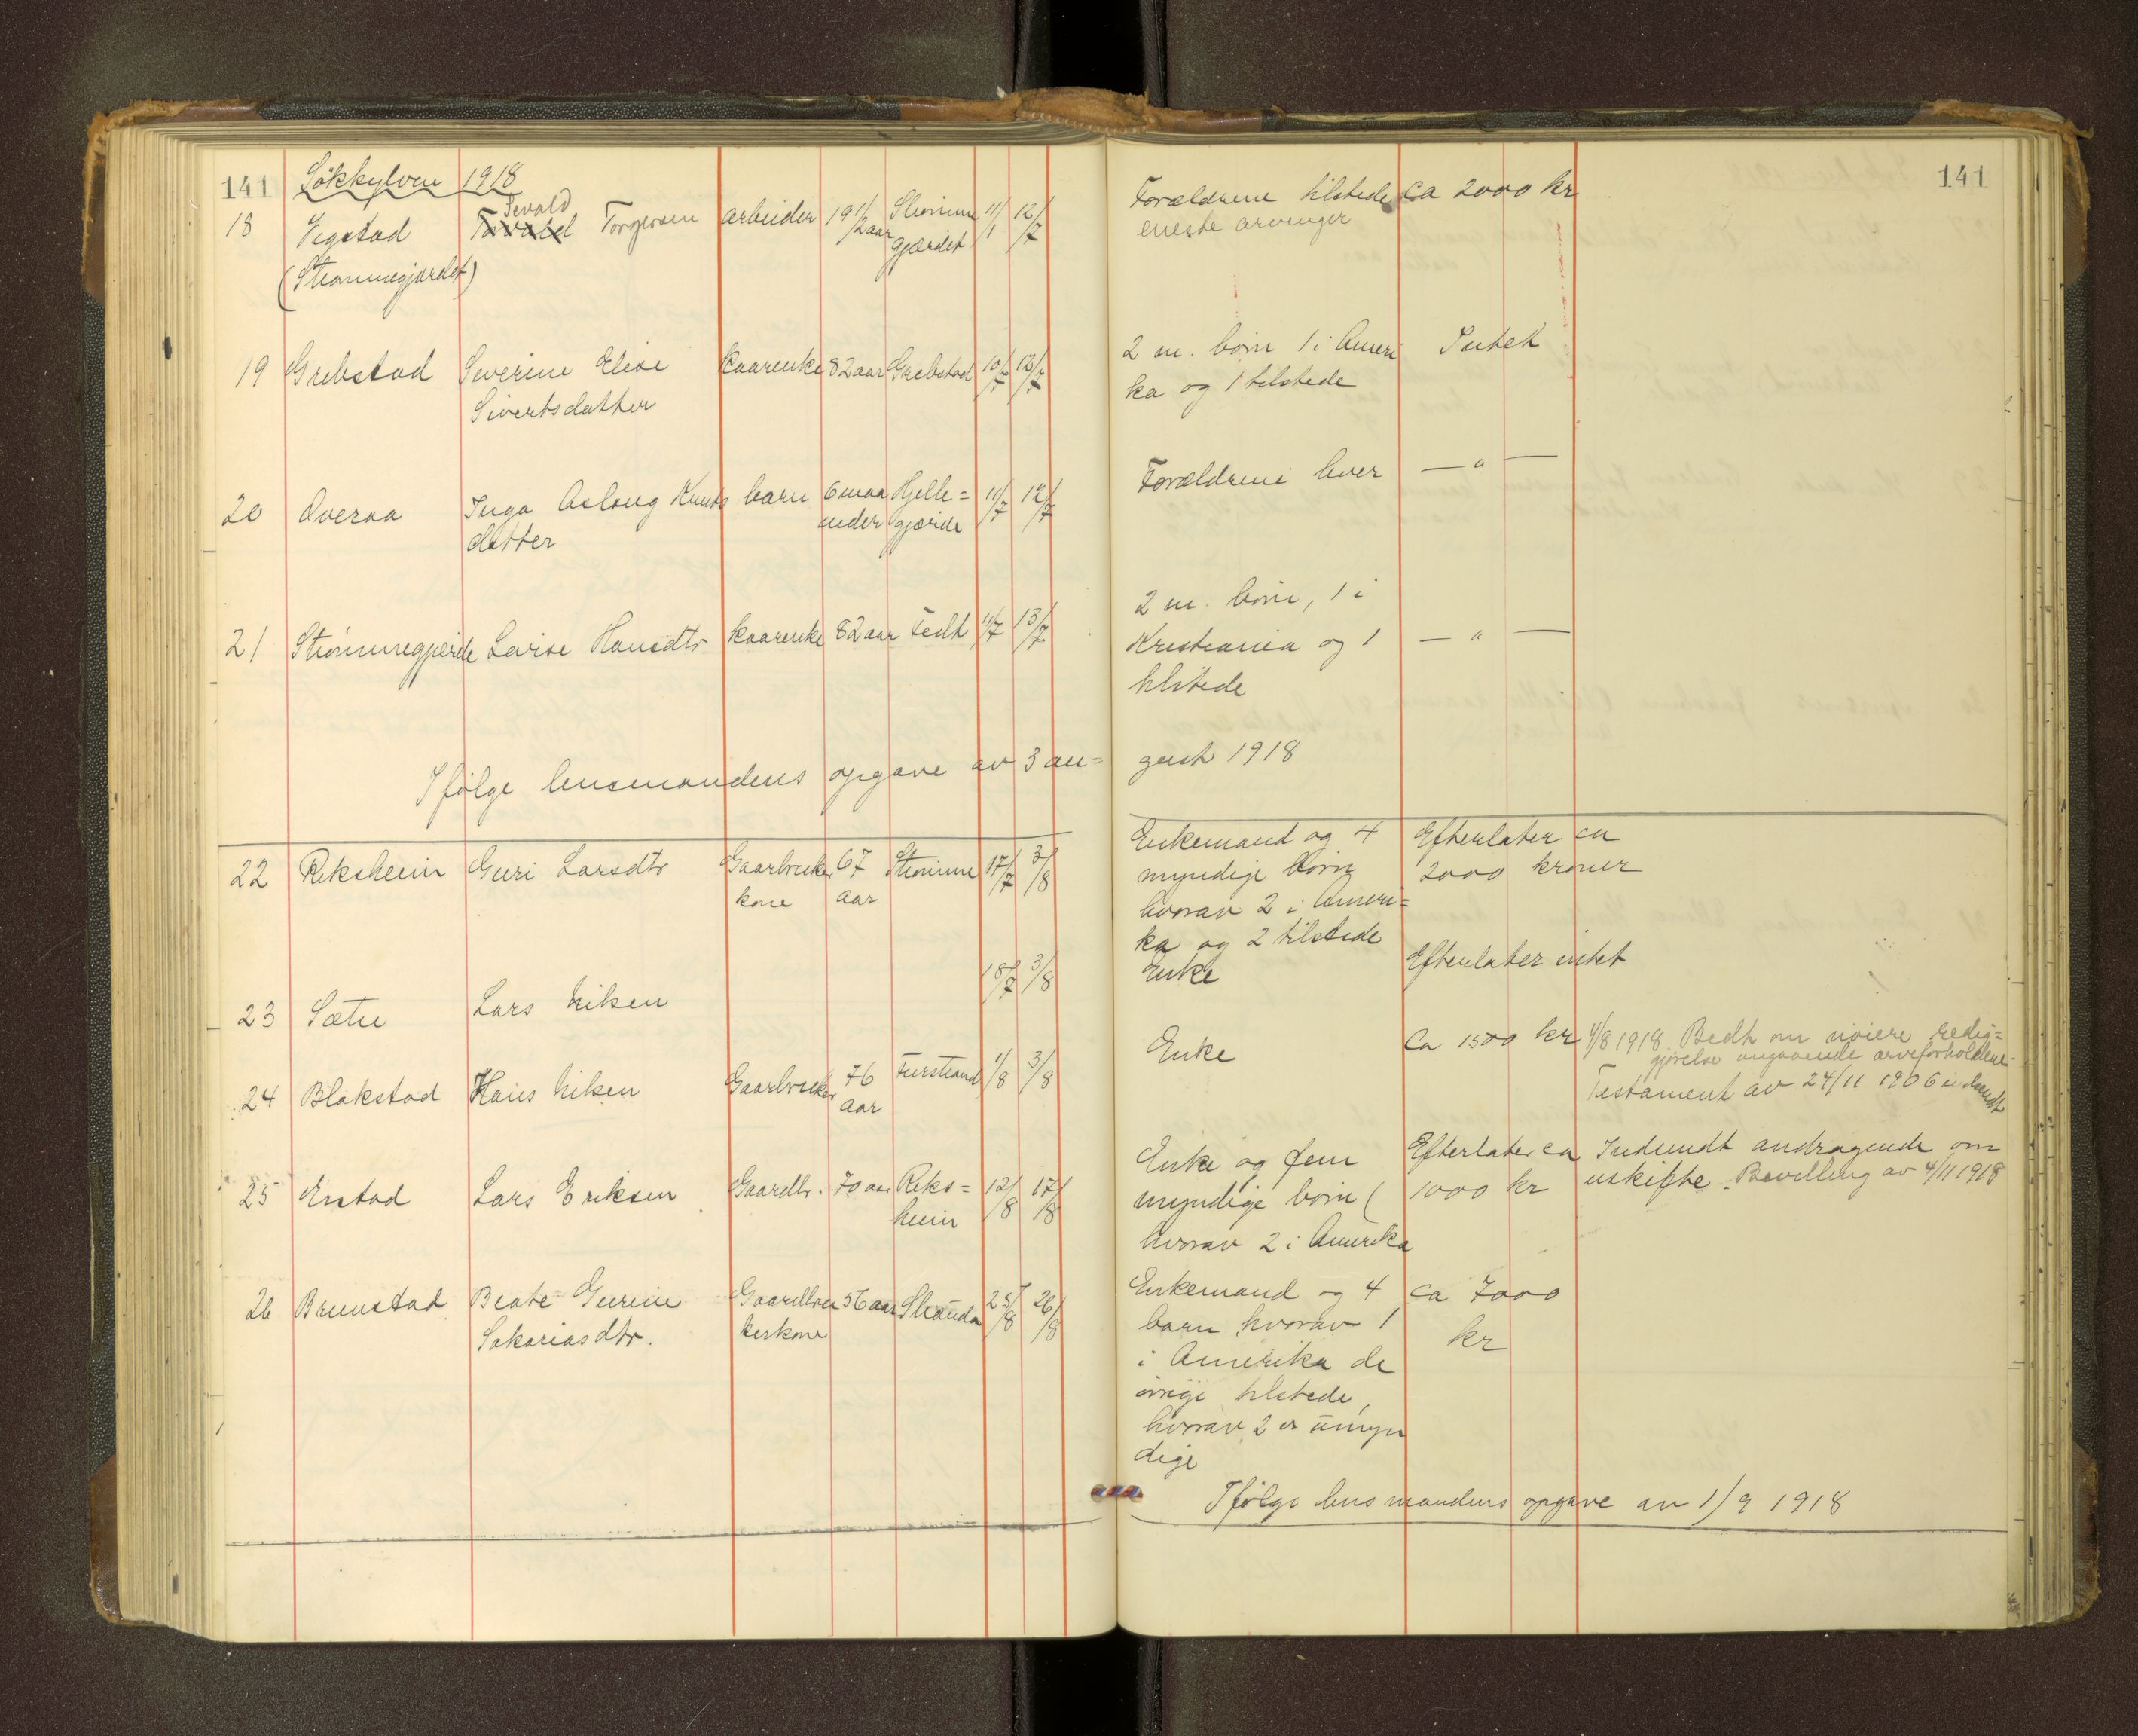 141 Søkkylven 1918
141
18 Vegstad Sevald Torgersen arbeider 19 1/2 aar Strømme 11/1 12/7 Forældrene tilstede ca 2000 kr
(Strømmegjerdet) gjærdet eneste arvinger
19 Grebstad Severine Elise kaarenke 82 aar Grebstad 10/7 12/7 2 m. børn 1 i Ameri Intet
Sivertsdatter ka og 1 tilstede
20 Overaa Inga Aslaug Knuts barn 6 maa Hjelle= 11/7 12/7 Forældrene lever — " —
datter neder gjærde
21 Strømmegjerde Lovise Hansdtr kaarenke 82 aar Tedt 11/7 13/7 2 m. børn, 1 i
Kristiania og 1 — " —
tilstede
Ifølge lensmandens opgave av 3 au= gust 1918
22 Riksheim Guri Larsdtr Gaarbruker 67 Strømme 17/7 3/8 Enkemand og 4 Efterlater ca
kone aar myndige børn 2000 kroner
hvorav 2 i Ameri=
ka og 2 tilstede
23 Sætre Lars Nilsen 18/7 3/8 Enke Efterlater intet
24 Blakstad Hans Nilsen Gaarbruker 76 Furstrand 1/8 3/8 Enke Ca 1500 kr 4/8 1918. Bedt om nøiere redig=
aar gjørelse angaaende arveforholdene.
Testament av 24/11 1906 indsendt
25 Erstad Lars Eriksen Gaardbr. 70 aar Riks= 12/8 17/8 Enke og fem Efterlater ca Indsendt andragende om
heim myndige børn ( 1000 kr uskifte. Bevilling av 4/11 1918
hvorav 2 i Amerika
26 Brunstad Beate Gurine Gaardbru 56 aar Stranda 25/8 26/8 Enkemand og 4 ca 7000
Sakariasdtr. kerkone barn hvorav 1 kr
i Amerika de
øvrige tilstede,
hvorav 2 er umyn
dige
Ifølge lensmandens opgave av 1/9 1918